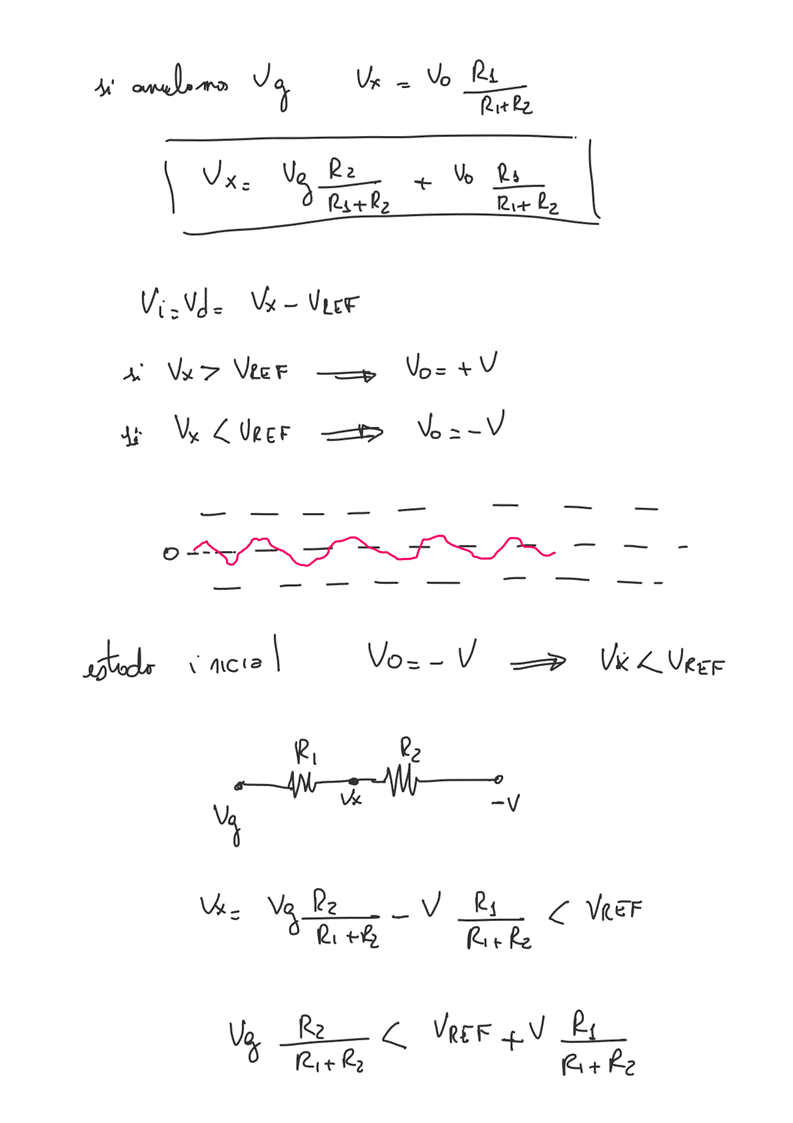 si anulamos Vg Vx = Vo R1/(R1+R2)
Vx = Vg R2/(R1+R2) + Vo R1/(R1+R2)
Vi = Vd = Vx - VREF
si Vx > VREF ⟹ Vo = +V
si Vx < VREF ⟹ Vo = -V
0
estado inicial Vo = -V ⟹ Vx < VREF
R1 R2
Vg Vx -V
Vx = Vg R2/(R1+R2) - V R1/(R1+R2) < VREF
Vg R2/(R1+R2) < VREF + V R1/(R1+R2)